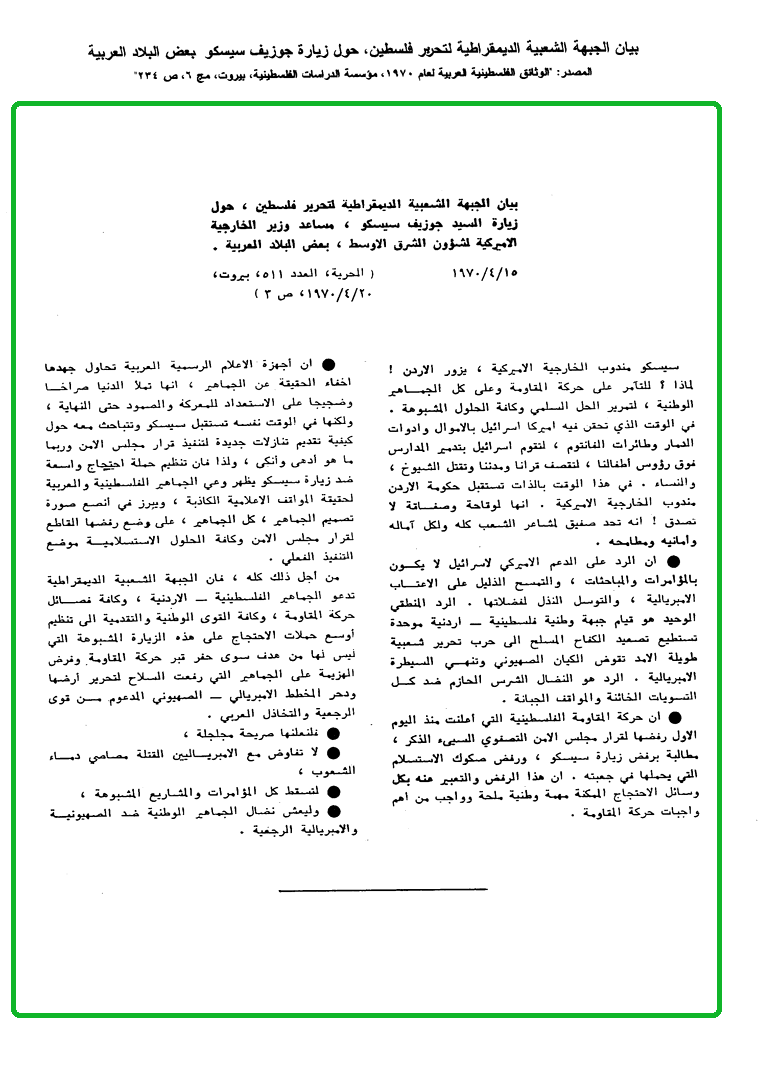 بيان الجبهة الشعبية الديمقراطية لتحرير فلسطين، حول زيارة جوزيف سيسكو بعض البلاد العربية
المصدر: "الوثائق الفلسطينية العربية لعام ١٩٧٠، مؤسسة الدراسات الفلسطينية، بيروت، مج ٦، ص ٢٣٤"
بيان الجبهة الشعبية الديمقراطية لتحرير فلسطين ، حول
زيارة السيد جوزيف سيسكو ، مساعد وزير الخارجية
الاميركية لشؤون الشرق الاوسط ، بعض البلاد العربية .
١٩٧٠/٤/١٥ ( الحرية، العدد ٥١١، بيروت،
١٩٧٠/٤/٢٠، ص ٣ )
سيسكو مندوب الخارجية الاميركية ، يزور الاردن !
لماذا ؟ للتآمر على حركة المقاومة وعلى كل الجماهير
الوطنية ، لتمرير الحل السلمي وكافة الحلول المشبوهة .
في الوقت الذي تحقن فيه اميركا اسرائيل بالاموال وادوات
الدمار وطائرات الفانتوم ، لتقوم اسرائيل بتدمير المدارس
فوق رؤوس اطفالنا ، لتقصف قرانا ومدننا وتقتل الشيوخ ،
والنساء . في هذا الوقت بالذات تستقبل حكومة الاردن
مندوب الخارجية الاميركية . انها لوقاحة وصفاقة لا
تصدق ! انه تحد صفيق لمشاعر الشعب كله ولكل آماله
وامانيه ومطامحه .
● ان الرد على الدعم الاميركي لاسرائيل لا يكون
بالمؤامرات والمباحثات ، والتمسح الذليل على الاعتاب
الامبريالية ، والتوسل النذل لفضلاتها . الرد المنطقي
الوحيد هو قيام جبهة وطنية فلسطينية ــ اردنية موحدة
تستطيع تصعيد الكفاح المسلح الى حرب تحرير شعبية
طويلة الامد تقوض الكيان الصهيوني وتنهي السيطرة
الامبريالية . الرد هو النضال الشرس الحازم ضد كل
التسويات الخائنة والمواقف الجبانة .
● ان حركة المقاومة الفلسطينية التي أعلنت منذ اليوم
الاول رفضها لقرار مجلس الامن التصفوي السيىء الذكر ،
مطالبة برفض زيارة سيسكو ، ورفض صكوك الاستسلام
التي يحملها في جعبته . ان هذا الرفض والتعبير عنه بكل
وسائل الاحتجاج الممكنة مهمة وطنية ملحة وواجب من أهم
واجبات حركة المقاومة .
● ان أجهزة الاعلام الرسمية العربية تحاول جهدها
اخفاء الحقيقة عن الجماهير ، انها تملأ الدنيا صراخا
وضجيجا على الاستعداد للمعركة والصمود حتى النهاية ،
ولكنها في الوقت نفسه تستقبل سيسكو وتتباحث معه حول
كيفية تقديم تنازلات جديدة لتنفيذ قرار مجلس الامن وربما
ما هو أدهى وأنكى ، ولذا فان تنظيم حملة احتجاج واسعة
ضد زيارة سيسكو يظهر وعي الجماهير الفلسطينية والعربية
لحقيقة المواقف الاعلامية الكاذبة ، ويبرز في أنصع صورة
تصميم الجماهير ، كل الجماهير ، على وضع رفضها القاطع
لقرار مجلس الامن وكافة الحلول الاستسلامية موضع
التنفيذ الفعلي .
من أجل ذلك كله ، فان الجبهة الشعبية الديمقراطية
تدعو الجماهير الفلسطينية ــ الاردنية ، وكافة فصائل
حركة المقاومة ، وكافة القوى الوطنية والتقدمية الى تنظيم
أوسع حملات الاحتجاج على هذه الزيارة المشبوهة التي
ليس لها من هدف سوى حفر قبر حركة المقاومة وفرض
الهزيمة على الجماهير التي رفعت السلاح لتحرير أرضها
ودحر المخطط الامبريالي ــ الصهيوني المدعوم من قوى
الرجعية والتخاذل العربي .
● فلنعلنها صريحة مجلجلة ،
● لا تفاوض مع الامبرياليين القتلة مصاصي دماء
الشعوب ،
● لتسقط كل المؤامرات والمشاريع المشبوهة ،
● وليعش نضال الجماهير الوطنية ضد الصهيونية
والامبريالية الرجعية .